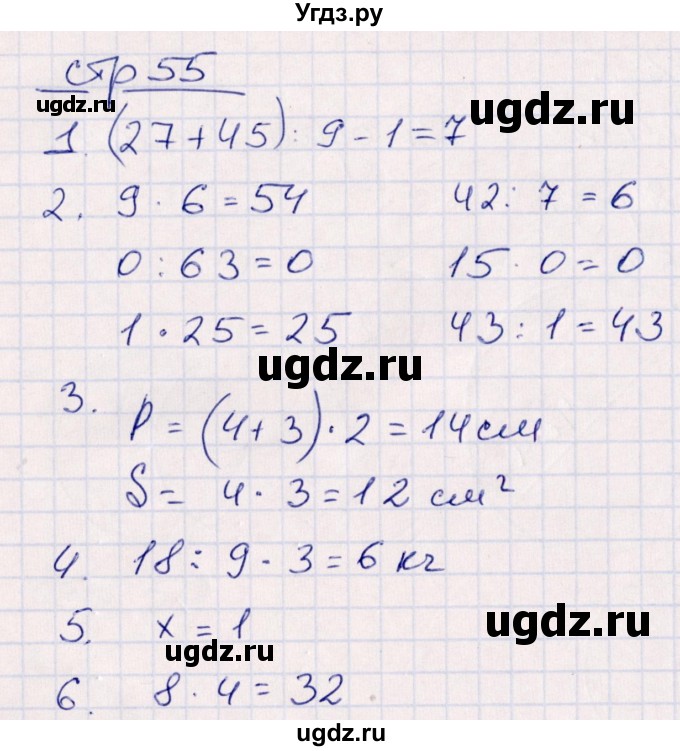 Угдз.ру
стр 55
ugdz.ru
ugdz.ru
1. (27+45) : 9 - 1 = 7
2. 9 · 6 = 54 42 : 7 = 6
0 : 63 = 0 15 · 0 = 0
1 · 25 = 25 43 : 1 = 43
ugdz.ru
3. P = (4+3) · 2 = 14 см
S = 4 · 3 = 12 см²
4. 18 : 9 · 3 = 6 кг
ugdz.ru
5. x = 1
ugdz.ru
6. 8 · 4 = 32
ugdz.ru